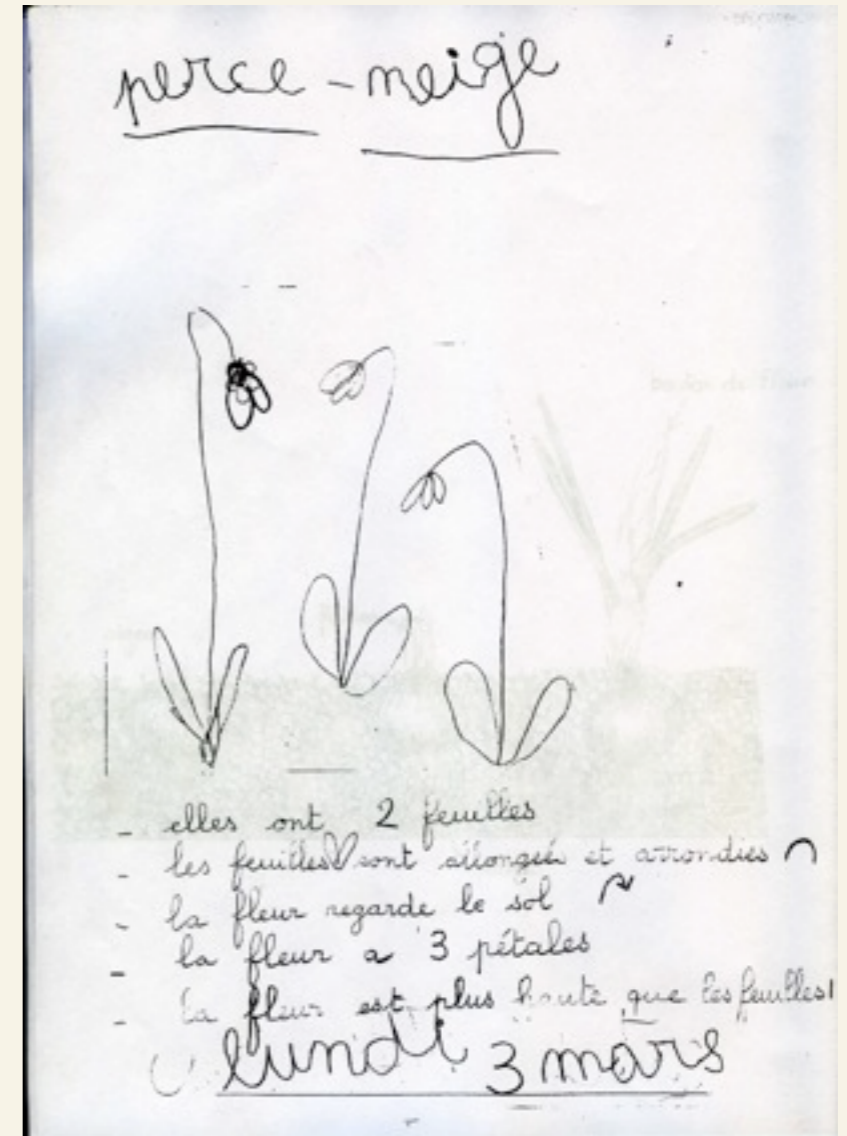 perce-neige
- elles ont 2 feuilles
- les feuilles sont allongées et arrondies
- la fleur regarde le sol
- la fleur a 3 pétales
- la fleur est plus haute que les feuilles
lundi 3 mars